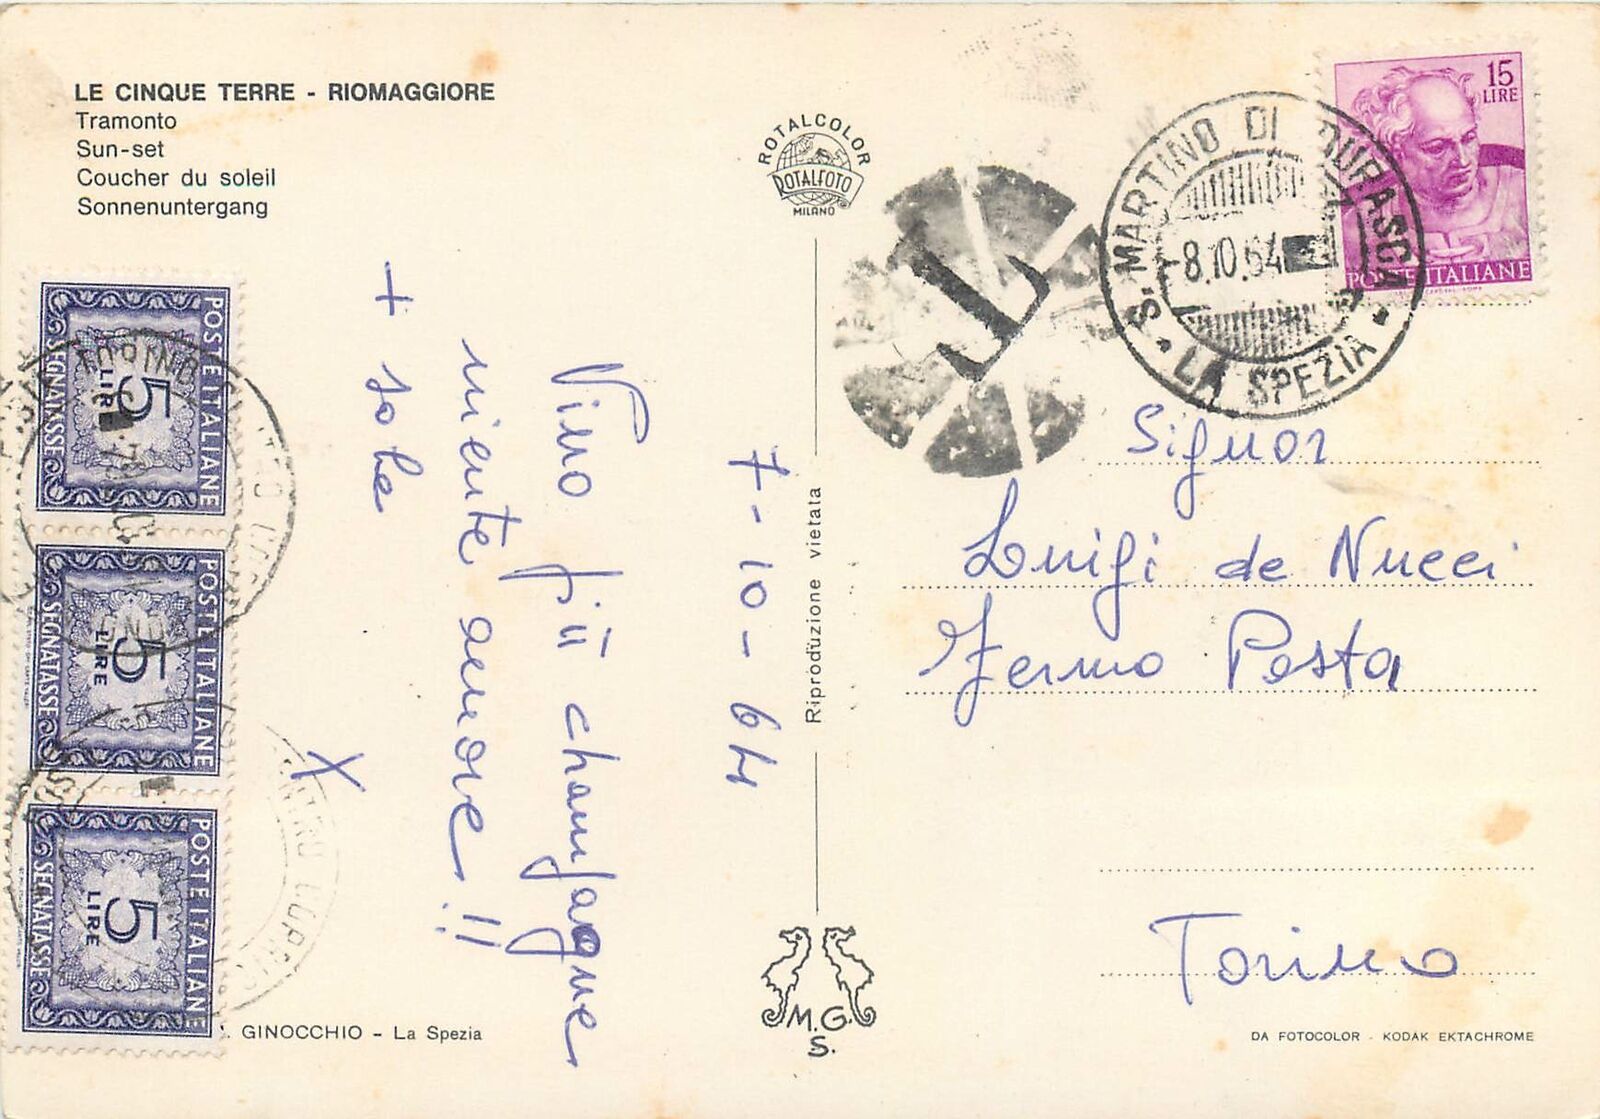 LE CINQUE TERRE - RIOMAGGIORE
Tramonto
Sun-set
Coucher du soleil
Sonnenuntergang
ROTALCOLOR
ROTALFOTO
MILANO
T
S. MARTINO DI DURASCA
8.10.64
LA SPEZIA
15
LIRE
POSTE ITALIANE
POSTE ITALIANE
5
LIRE
SEGNATASSE
POSTE ITALIANE
5
LIRE
SEGNATASSE
POSTE ITALIANE
5
LIRE
SEGNATASSE
7-10-64
Vino più champagne
niente amore!!
+ sole
X
Riproduzione vietata
Signor
Luigi de Nucci
Fermo Posta
Torino
M.G.
S.
GINOCCHIO - La Spezia
DA FOTOCOLOR - KODAK EKTACHROME